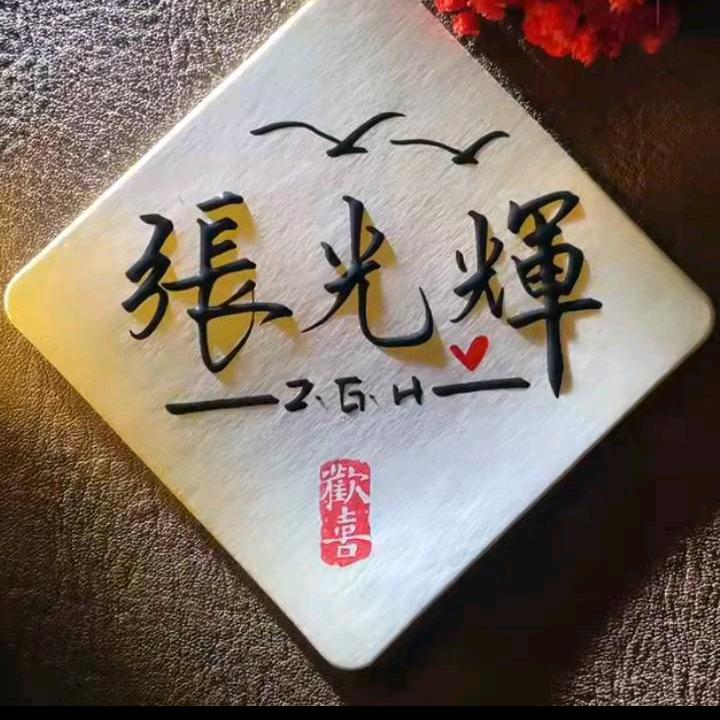 張光輝
Z.G.H
歡喜